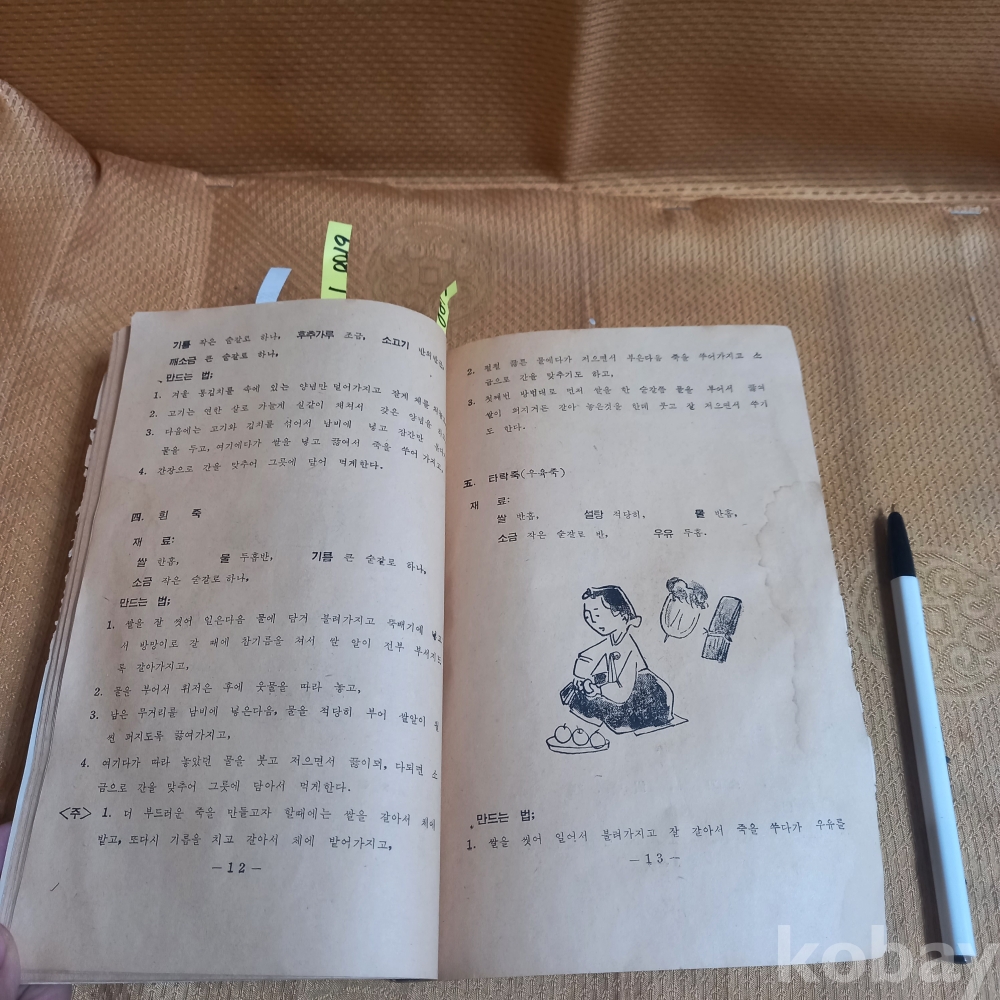 10019
기름 작은 숟갈로 하나, 후추가루 조금, 소고기 반의반근,
깨소금 큰 숟갈로 하나,
만드는 법;
1. 겨울 통김치를 속에 있는 양념만 털어가지고 잘게 채를
2. 고기는 연한 살로 가늘게 실같이 채쳐서 갖은 양념을
3. 다음에는 고기와 김치를 섞어서 남비에 넣고 잠간만
물을 두고, 여기에다가 쌀을 넣고 끓여서 죽을 쑤어 가지고,
4. 간장으로 간을 맞추어 그릇에 담어 먹게한다.
四. 흰 죽
재 료:
쌀 반홉, 물 두홉반, 기름 큰 숟갈로 하나,
소금 작은 숟갈로 하나,
만드는 법;
1. 쌀을 잘 씻어 일은다음 물에 담거 불려가지고 뚝배기에
서 방망이로 갈 때에 참기름을 쳐서 쌀 알이 전부 부서지도
록 갈아가지고,
2. 물을 부어서 휘저은 후에 웃물을 따라 놓고,
3. 남은 무거리를 남비에 넣은다음, 물을 적당히 부어 쌀알이
씬 퍼지도록 끓여가지고,
4. 여기다가 따라 놓았던 물을 붓고 저으면서 끓이되, 다되면 소
금으로 간을 맞추어 그릇에 담아서 먹게한다.
<주> 1. 더 부드러운 죽을 만들고자 할때에는 쌀을 갈아서 체에
받고, 또다시 기름을 치고 갈아서 체에 받어가지고,
— 12 —
2. 펄펄 끓른 물에다가 저으면서 부은다음 죽을 쑤어가지고 소
금으로 간을 맞추기도 하고,
3. 첫째번 방법대로 먼저 쌀을 한 숟갈쯤 물을 부어서 끓여
쌀이 퍼지거든 갈아 놓은것을 한데 붓고 잘 저으면서 쑤기
도 한다.
五. 타락죽(우육죽)
재 료:
쌀 반홉, 설탕 적당히, 물 반홉,
소금 작은 숟갈로 반, 우유 두홉.
만드는 법;
1. 쌀을 씻어 일어서 불려가지고 잘 갈아서 죽을 쑤다가 우유를
— 13 —
kobay